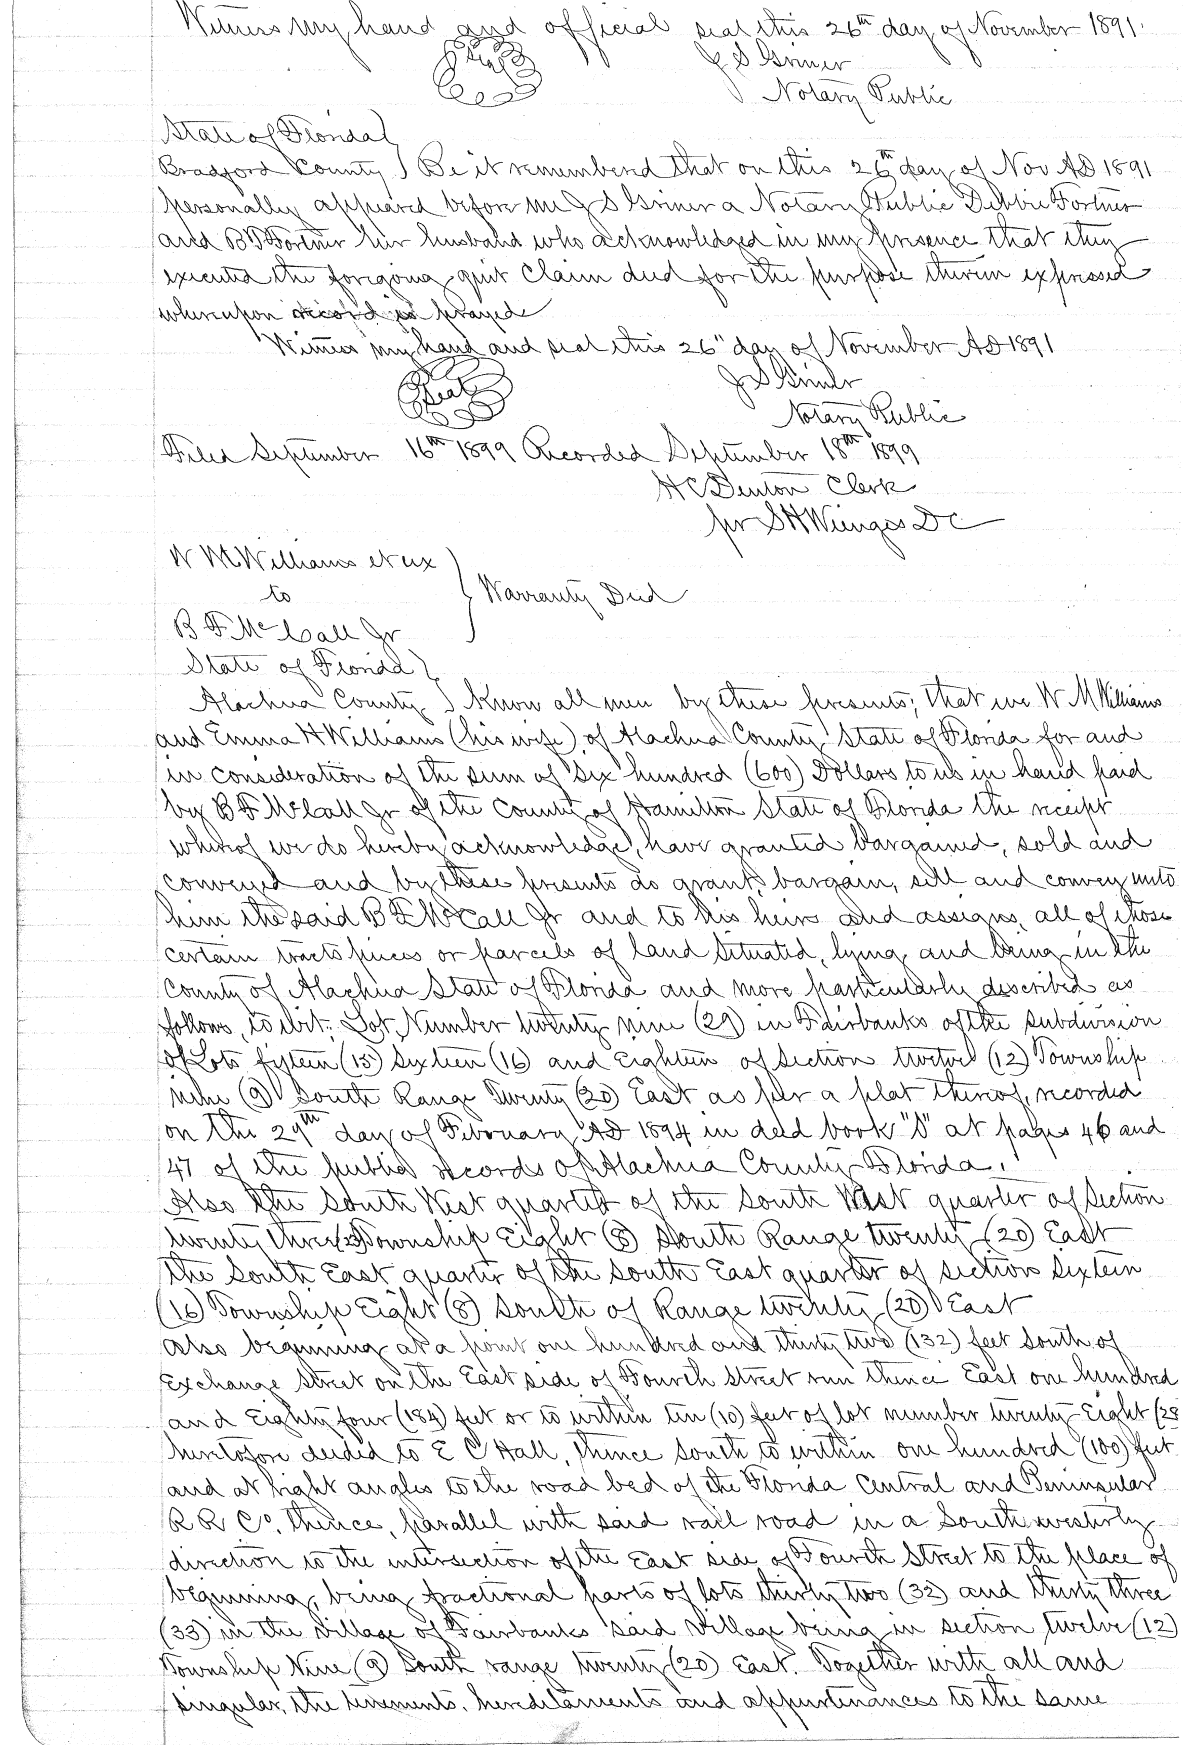 Witness my hand and official seal this 26th day of November 1891.
Seal
J S Griner
Notary Public
State of Florida }
Bradford County } Be it remembered that on this 26th day of Nov AD 1891
personally appeared before me J S Griner a Notary Public Debbie Fortner
and B F Fortner her husband who acknowledged in my presence that they
executed the foregoing quit claim deed for the purpose therein expressed
whereupon record is prayed
Witness my hand and seal this 26" day of November AD 1891
Seal
J S Griner
Notary Public
Filed September 16th 1899 Recorded September 18th 1899
H C Denton Clerk
pr S H Wienges DC
W M Williams et ux
to } Warranty Deed
B F McCall Jr
State of Florida }
Alachua County } Know all men by these presents; that we W M Williams
and Emma H Williams (his wife) of Alachua County State of Florida for and
in consideration of the sum of Six hundred (600) Dollars to us in hand paid
by B F McCall Jr of the County of Hamilton State of Florida the receipt
whereof we do hereby acknowledge, have granted bargained, sold and
conveyed and by these presents do grant, bargain, sell and convey unto
him the said B F McCall Jr and to his heirs and assigns, all of those
certain tracts pieces or parcels of land situated, lying, and being in the
County of Alachua State of Florida and more particularly described as
follows, to wit: Lot Number twenty nine (29) in Fairbanks of the subdivision
of Lots fifteen (15) Sixteen (16) and Eighteen of Section twelve (12) Township
nine (9) South Range Twenty (20) East as per a plat thereof, recorded
on the 29th day of February AD 1894 in deed book at pages 46 and
47 of the public records of Alachua County Florida.
Also the South West quarter of the South West quarter of Section
twenty three (23) Township Eight (8) South Range twenty (20) East
the South East quarter of the South East quarter of section sixteen
(16) Township Eight (8) South of Range twenty (20) East
also beginning at a point one hundred and thirty two (132) feet South of
Exchange Street on the East side of Fourth Street run thence East one hundred
and Eighty four (184) feet or to within ten (10) feet of lot number twenty Eight (28
heretofore deeded to E C Hall, thence South to within one hundred (100) feet
and at right angles to the road bed of the Florida Central and Peninsular
R R Co. thence, parallel with said rail road in a South westerly
direction to the intersection of the East side of Fourth Street to the place of
beginning, being fractional parts of lots thirty two (32) and thirty three
(33) in the village of Fairbanks said village being in section twelve (12)
Township Nine (9) South range twenty (20) East. Together with all and
singular, the tenements, hereditaments and appurtenances to the same